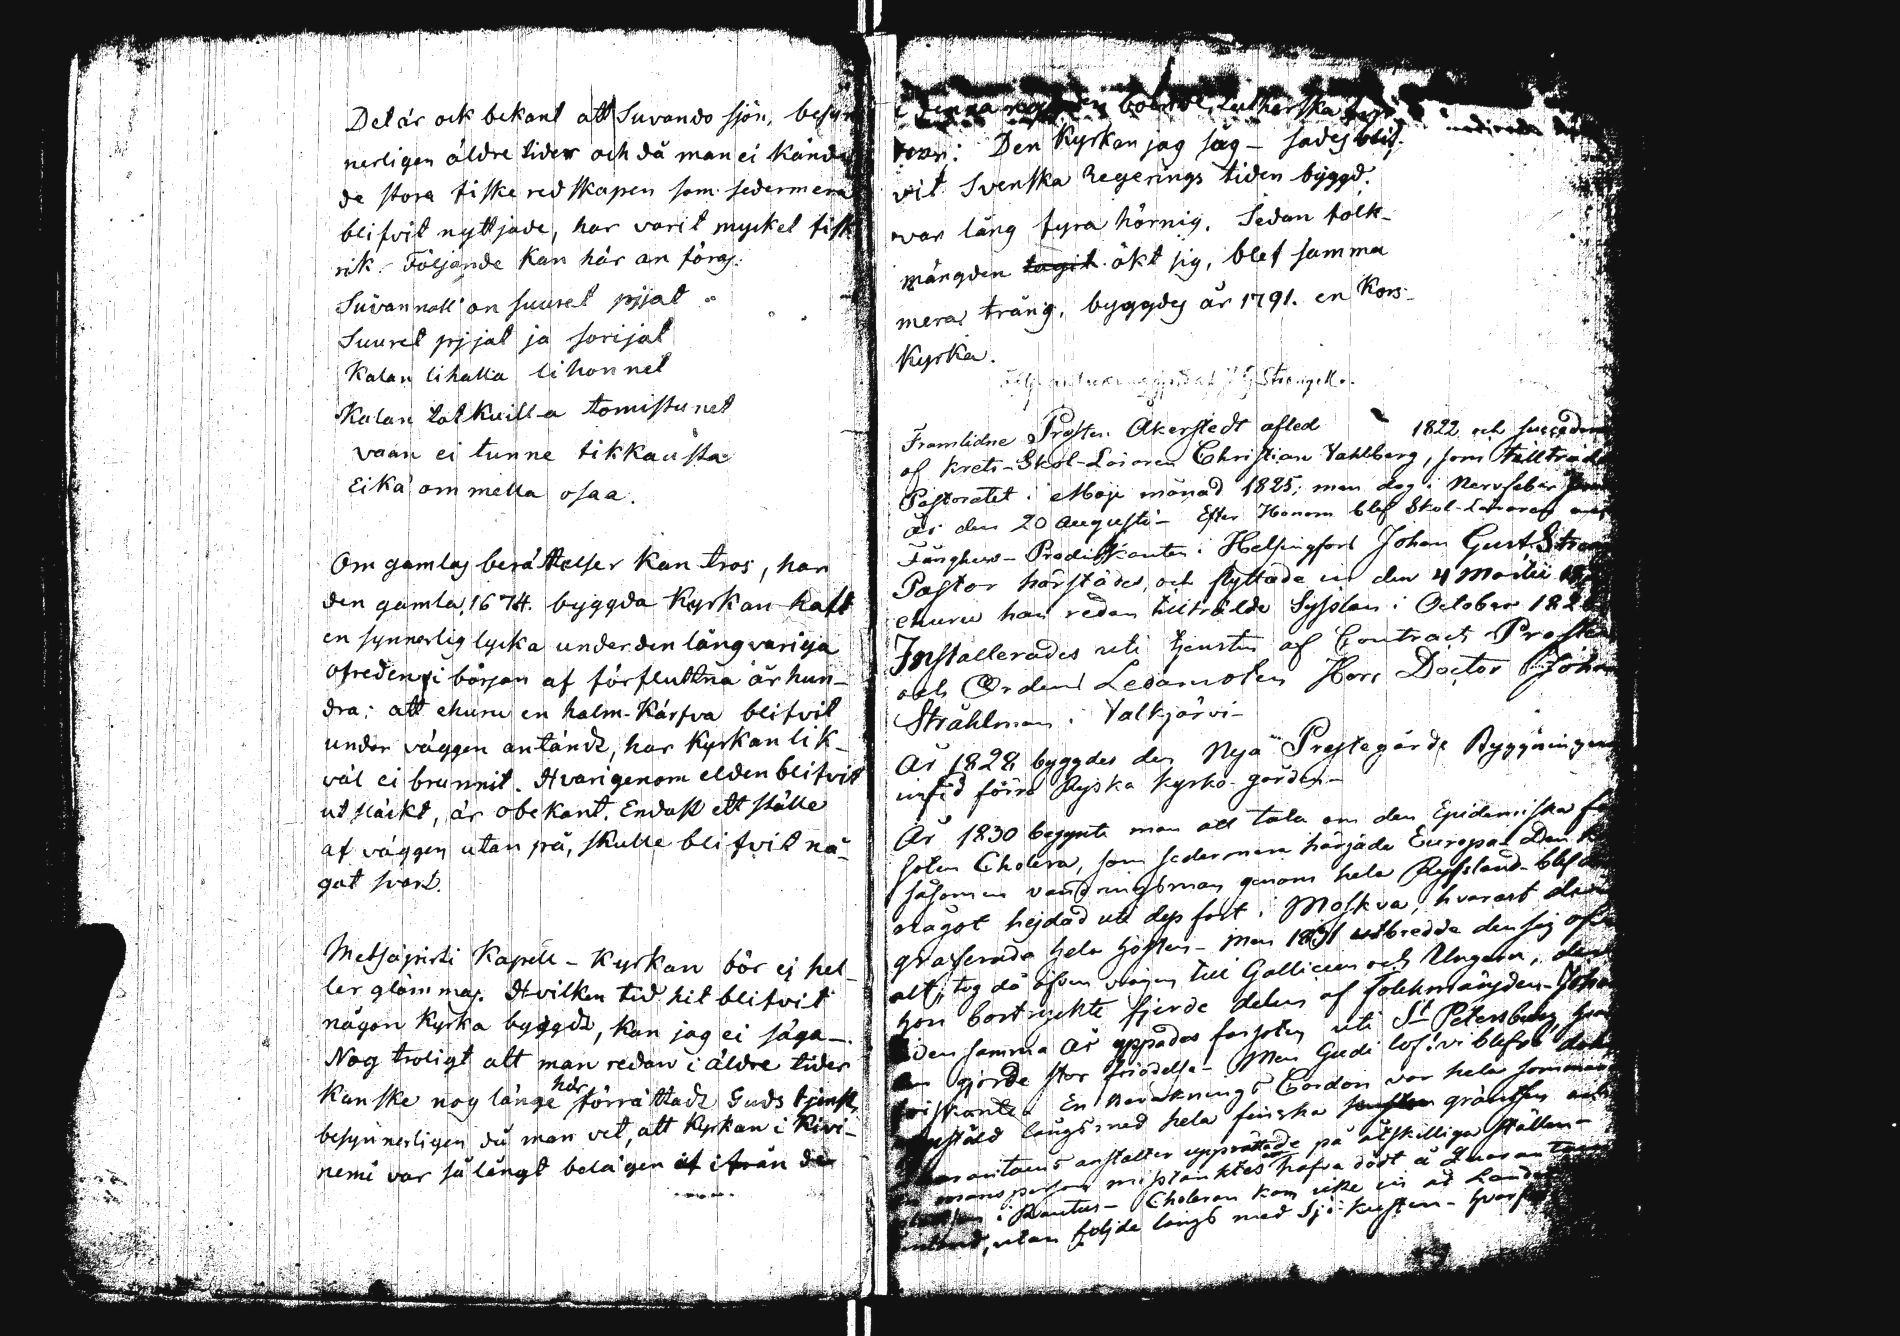 Det är ock bekant att Suvando sjön, besyn
nerligen äldre tider och då man ei kände
de stora fiske redskapen som sedermera
blifvit nyttjade, har varit mycket fisk
rik. Följande kan här an föras:
Suvannoll' on suuret pijat
Suuret pijat ja sorijat
Kalan lihalla lihonnet
Kalan totkuilla tomistunet
vaan ei tunne tikkausta
Eikä ommella osaa.
Om gamlas berättelser kan tros, har
den gamla 1674. byggda Kyrkan haft
en synnerlig lycka under den långvariga
ofreden i början af förflutna århun-
dra: att ehuru en halm-kärfva blifvit
under väggen antändt, har Kyrkan lik-
väl ei brunnit. Hvarigenom elden blifvit
utsläckt, är obekant. Endast ett ställe
af väggen utan på, skulle blifvit nå-
got svart.
Metsäpirti Kapell-Kyrkan bör ej hel-
ler glömmas. Hvilken tid hit blifvit
någon Kyrka byggdt, kan jag ei säga-.
Nog troligt att man redan i äldre tider
Kanske nog länge här förrättadt Guds tjenst,
besynnerligen då man vet, att Kyrkan i Kivi-
nemi var så långt belägen af ifrån de
i denna Lutherska
Den Kyrkan jag såg - sades blif-
vit Svenska Regerings tiden byggd.
var lång fyra hörnig. Sedan folk-
mängden tagit ökt sig, blef samma
mera trång, byggdes år 1791. en Kors-
Kyrka.
Strengell.
Framlidne Prosten Åkerstedt afled 1822 och
af Krets-Skol-Läraren Christian Vahlberg, som tillträdde
Pastoratet i Maji månad 1825; men dog i Nervfeber
år den 20 Augusti - Efter Honom blef Skol-Läraren
Fånghus-Predikanten i Helsingfors Johan Gust.
Pastor härstädes, och flyttade in den 4 Martii
ehuru han redan tillträdde Sysslan i October
Installerades uti tjensten af Contracts Prosten
och Ordens Ledamoten Herr Doctor Johan
Stråhlman i Valkjärvi-
År 1828 byggdes den Nya Prestegårds Byggningen
invid förra Ryska Kyrko-gården-
År 1830 begynte man att tala om den Epidemiska
Cholera, som sedermera härjade Europa. Den
såsom en vandringsman genom hela Ryssland blef
något hejdad uti dess fart i Moskva, hvarest den
grasserade hela hösten - Men 1831 utbredde den sig
allt, tog då äfven vägen till Gallicien och Ungarn,
hon bortryckte fjerde delen af folkmängden-
samma år uppades farsoten uti St Petersburg,
gjorde stor förödelse- Men Gudi lof! vi blefvo
En Bevaknings Cordon var hela sommaren
långs med hela finska gräntsen
anstalter upprättade på åtskilliga ställen-
mansperson misstänktes hafva dödt å
i Rautus- Choleran kom icke in åt Landet
utan följde längs med Sjö-kusten-